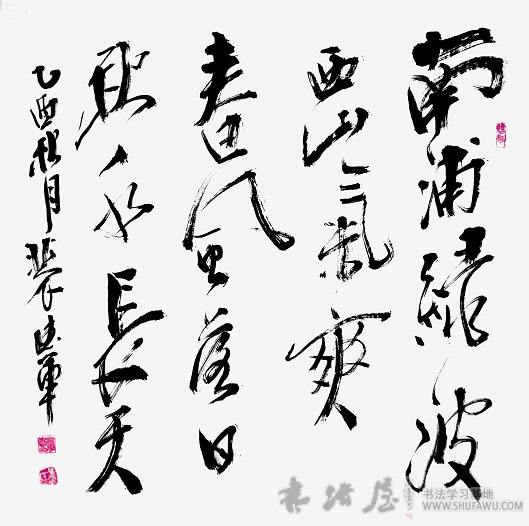 南浦綠波
西山氣爽
春風落日
秋水長天
乙酉秋月裴軍
书法屋
书法学习基地
WWW.SHUFAWU.COM